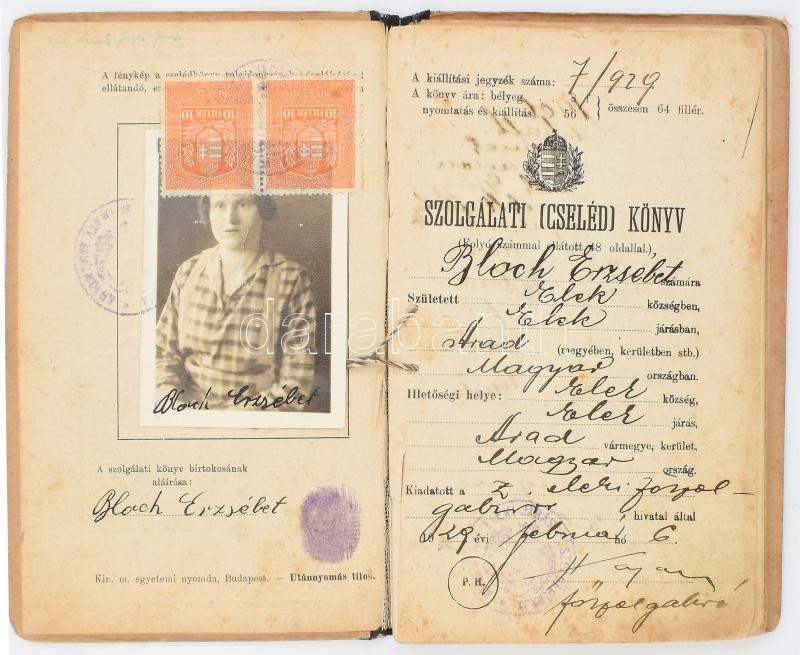 A fénykép a cselédkönyv tulajdonosán
ellátandó,
10 FILLÉR 10
10 FILLÉR 10
Bloch Erzsébet
A szolgálati könyv birtokosának
aláírása:
Bloch Erzsébet
Kir. m. egyetemi nyomda, Budapest. — Utánnyomás tilos.
A kiállítási jegyzék száma: 7/929
A könyv ára: bélyeg 8
nyomtatás és kiállítás 56 összesen 64 fillér.
SZOLGÁLATI (CSELÉD) KÖNYV
(Folyó számmal ellátott 48 oldallal.)
Bloch Erzsébet számára
Született Elek községben,
Elek járásban,
Arad (megyében, kerületben stb.)
Magyar országban.
Illetőségi helye: Elek község,
Elek járás,
Arad vármegye, kerület,
Magyar ország.
Kiadatott a z eleki főszol-
gabirói hivatal által
1929 évi február hó 6.
P. H.
főszolgabiró
darabanth